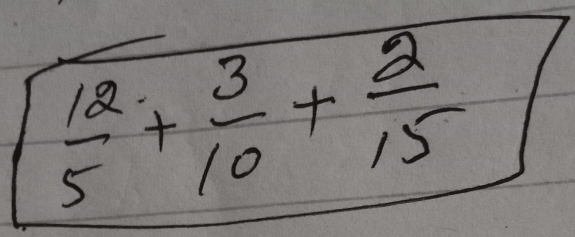 12/5 + 3/10 + 2/15